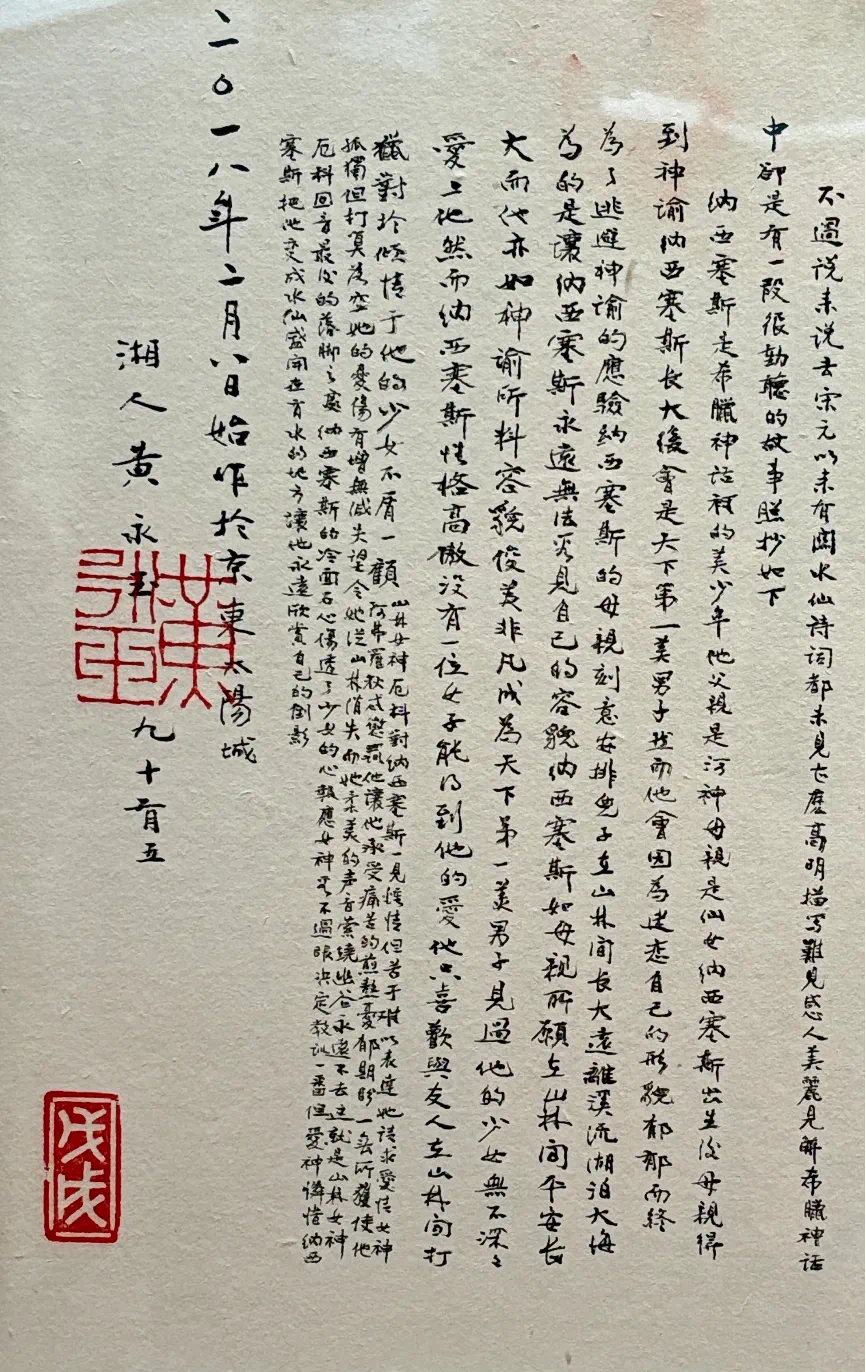 不過说来说去宋元以来有関水仙詩词都未見古麽高明描写難見感人美麗見解希臘神话
中卻是有一段很動聽的故事照抄如下
纳西塞斯是希臘神话裡的美少年他父親是河神母親是仙女纳西塞斯出生後母親得
到神谕纳西塞斯长大後會是天下第一美男子然而他會因為迷恋自己的形貌郁郁而終
為了逃避神谕的應驗纳西塞斯的母親刻意安排兒子在山林间长大遠離溪流湖泊大海
為的是讓纳西塞斯永遠無法看見自己的容貌纳西塞斯如母親所願在山林间平安长
大而他亦如神谕所料容貌俊美非凡成為天下第一美男子見過他的少女無不深々
愛上他然而纳西塞斯性格高傲没有一位女子能得到他的愛他只喜歡與友人在山林间打
獵對於倾情于他的少女不屑一顧
山林女神厄科對纳西塞斯一見鍾情但苦于难以表達她请求愛情女神
阿弗羅狄忒懲罰他讓他承受痛苦的煎熬憂郁期盼一無所獲使他
孤獨但打算落空她的憂傷有增無减失望令她從山林消失而她柔美的声音縈绕幽谷永遠不去这就是山林女神
厄科回音最後的落脚之處纳西塞斯的冷面石心傷透了少女的心報應女神看不過眼决定教训一番但愛神憐惜纳西
塞斯把他变成水仙盛開在有水的地方讓他永遠欣賞自己的倒影
二〇一八年二月八日始作於京東太陽城
湘人黄永玉 九十有五
黄永玉
戊戌